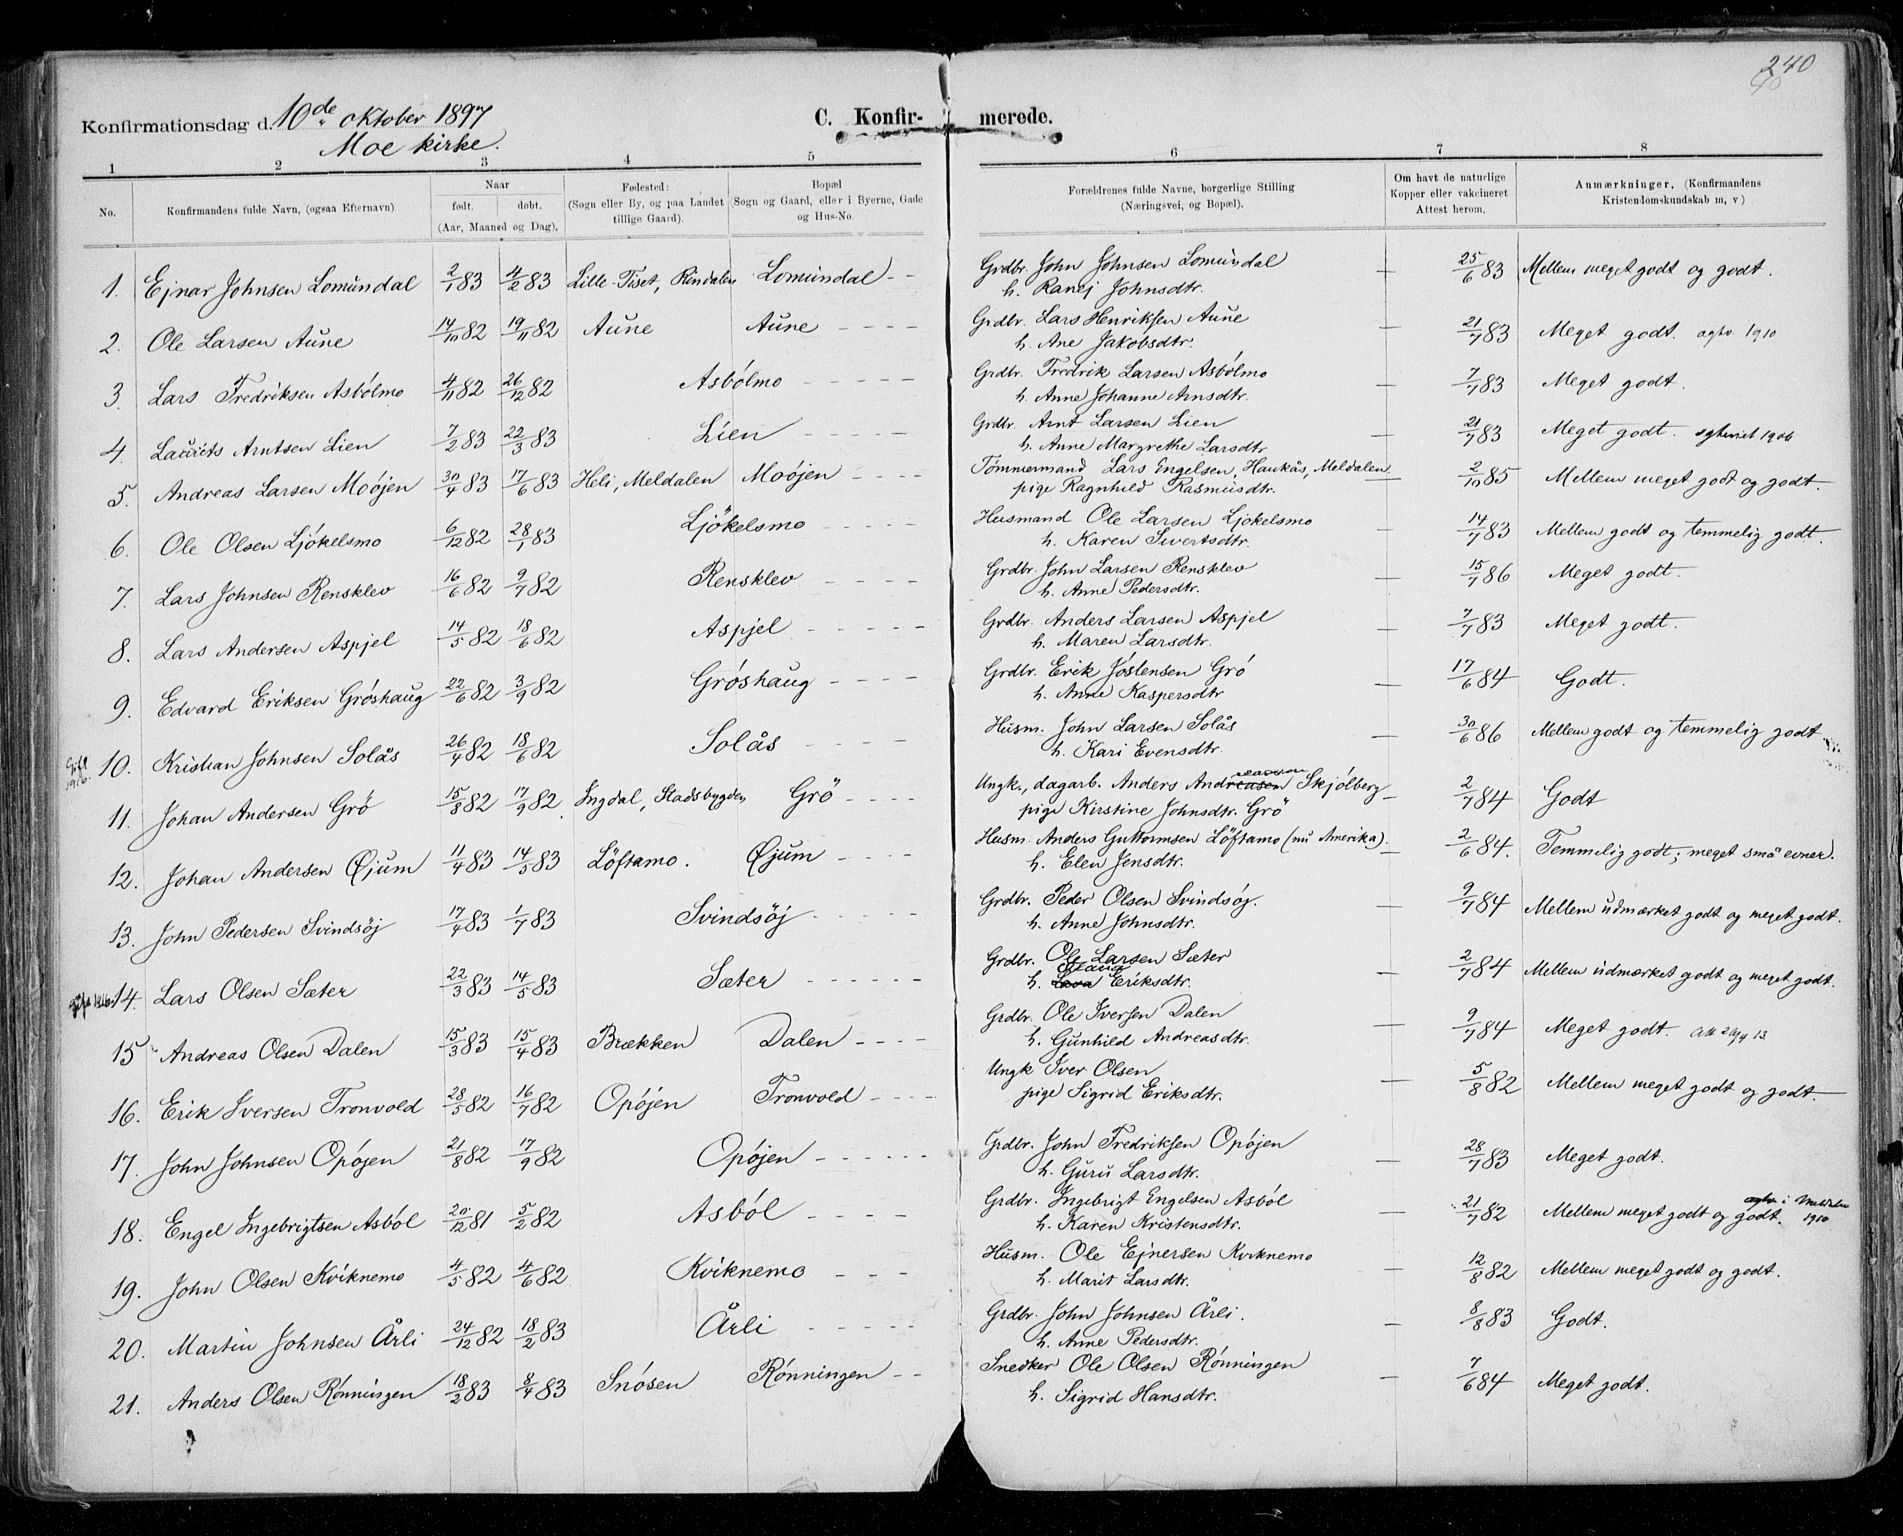 240
Konfirmationsdag d. 10de oktober 1897
Moe kirke.
C. Konfirmerede.
1 2 3 4 5 6 7 8
No. Konfirmandens fulde Navn, (ogsaa Efternavn) Naar født. døbt. (Aar, Maaned og Dag). Fødested: (Sogn eller By, og paa Landet tillige Gaard). Bopæl (Sogn og Gaard, eller i Byerne, Gade og Hus-No. Forældrenes fulde Navne, borgerlige Stilling (Næringsvei, og Bopæl). Om havt de naturlige Kopper eller vakcineret Attest herom. Anmærkninger, (Konfirmandens Kristendomskundskab m, v)
1. Ejnar Johnsen Lomundal 2/1 83 4/2 83 Lille-Tiset, Rindalen Lomundal - - Grdbr. John Johnsen Lomundal — 25/6 83 Mellem meget godt og godt.
h. Ranej Johnsdtr.
2. Ole Larsen Aune 14/10 82 19/11 82 Aune Aune - - - - Grdbr. Lars Henriksen Aune — 21/7 83 Meget godt. 1910
h. Ane Jakobsdtr.
3. Lars Fredriksen Asbólmo 4/11 82 26/12 82 Asbólmo - - - - - Grdbr. Fredrik Larsen Asbólmo — 7/7 83 Meget godt.
h. Anne Johanne Arnsdtr.
4. Laurits Arntsen Lien 7/2 83 22/3 83 Lien - - - - - Grdbr. Arnt Larsen Lien — 21/7 83 Meget godt. 1906
h. Anne Margrethe Larsdtr
5. Andreas Larsen Moójen 30/4 83 17/6 83 Heli, Meldalen Moójen - - - - Tómmermand Lars Engelsen, Haukås, Meldalen — 2/10 85 Mellem meget godt og godt.
pige Ragnhild Rasmusdtr.
6. Ole Olsen Ljókelsmo 6/12 82 28/1 83 Ljökelsmo - - - - - Husmand Ole Larsen Ljokelsmo — 14/7 83 Mellem godt og temmelig godt.
h. Karen Sivertsdtr.
7. Lars Johnsen Rensklev 16/6 82 9/7 82 Rensklev - - - - - Grdbr. John Larsen Rensklev — 15/7 86 Meget godt.
h. Anne Pedersdtr.
8. Lars Andersen Aspjel 14/5 82 18/6 82 Aspjel - - - - - Grdbr. Anders Larsen Aspjel — 7/7 83 Meget godt.
h. Maren Larsdtr.
9. Edvard Eriksen Gróshaug 22/6 82 3/9 82 Gróshaug - - - - Grdbr. Erik Jóstensen Gró — 17/6 84 Godt.
h. Anne Kaspersdtr
Gift 1916. 10. Kristian Johnsen Solås 26/4 82 18/6 82 Solås - - - - Husm. John Larsen Solås — 30/6 86 Mellem godt og temmelig godt
h. Kari Evensdtr.
11. Johan Andersen Gró 15/8 82 17/9 82. Ingdal, Stadsbygden Grö - - - - Ungk., dagarb. Anders Andreasen Skjólberg — 2/7 84 Godt
pige Kirstine Johnsdtr. Grö
12. Johan Andersen Øjum 11/4 83 14/5 83 Löftamo. Øjum - - - - Husm. Anders Guttormsen Löftamo (nu Amerika). — 2/6 84. Temmelig godt; meget små evner.
h. Elen Jensdtr.
13. John Pedersen Svindsöj 17/4 83 1/7 83 Svindsöj - - - - - Grdbr. Peder Olsen Svindsög. — 9/7 84 Mellem udmærket godt og meget godt.
h. Anne Johnsdtr.
14. Lars Olsen Sæter 22/3 83 14/5 83 Sæter - - - - - Grdbr. Ole Larsen Sæter — 2/7 84 Mellem udmærket godt og meget godt.
h. Eriksdtr.
15 Andreas Olsen Dalen 15/3 83 15/4 83 Brækken Dalen - - - - Grdbr. Ole Iversen Dalen — 9/7 84 Meget godt.
h. Gunhild Andreasdtr.
16. Erik Iversen Tronvold 28/5 82 16/7 82 Opójen Tronvold - - - - Ungk Iver Olsen — 5/8 82 Mellem meget godt og godt.
pige Sigrid Eriksdtr.
17. John Johnsen Opójen 21/8 82 17/9 82 Opójen - - - - - Grdbr. John Fredriksen Opójen — 28/7 83 Meget godt.
h. Guru Larsdtr.
18. Engel Ingebrigtsen Asból 20/12 81 5/2 82 Asból - - - - Grdbr. Ingebrigt Engelsen Asból 21/7 82 Mellem meget godt og godt. i Meldalen 1910
h. Karen Kristensdtr.
19. John Olsen Kviknemo 4/5 82 4/6 82 Kviknemo - - - Husm. Ole Ejnersen Kviknemo — 12/8 82 Mellem meget godt og godt.
h. Marit Larsdtr.
20. Martin Johnsen Årli 24/12 82 18/2 83 Årli - - - - Grdbr. John Johnsen Årli. — 8/8 83 Godt.
h. Anne Pedersdtr.
21. Anders Olsen Rónningen 18/2 83 8/4 83 Snósen Rónningen - - Snedker Ole Olsen Rónningen — 7/6 84 Meget godt.
h. Sigrid Hansdtr.